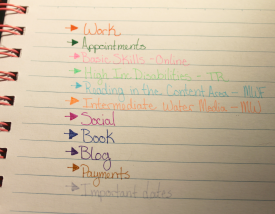 Work
Appointments
Basic Skills - Online
High Inc Disabilities - TR
Reading in the Content Area - M/F
Intermediate Water Media - M/W
Social
Book
Blog
Payments
Important dates